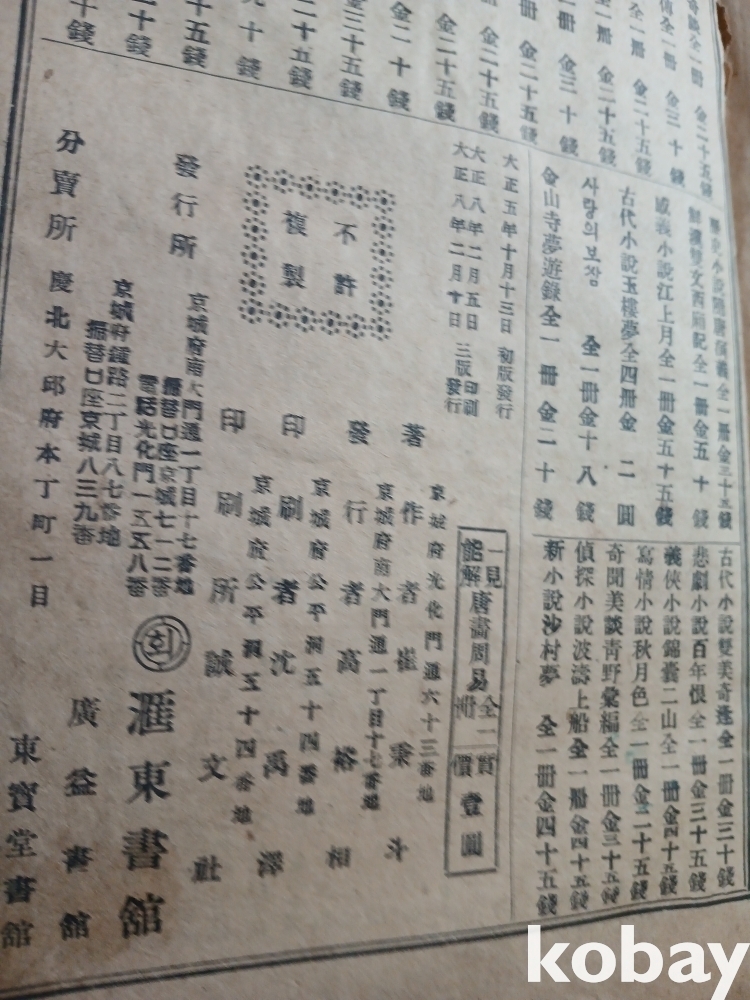 金二十五錢
全一冊 金三十錢
全一冊 金二十五錢
一冊 金二十五錢
冊 金三十錢
冊 金二十五錢
金二十五錢
金二十五錢
金二十錢
金三十五錢
二十五錢
十錢
十五錢
十錢
十錢
全一冊 金三十五錢
全一冊 金五十錢
小說江上月 全一冊 金五十五錢
古代小說玉樓夢 全四冊 金二圓
사랑의보장 全一冊 金十八錢
金山寺夢遊錄 全一冊 金二十錢
古代小說雙美奇逢 全一冊 金三十錢
悲劇小說百年恨 全一冊 金三十五錢
義俠小說錦囊二山 全一冊 金四十五錢
寫情小說秋月色 全一冊 金二十五錢
奇聞美談靑野彙編 全一冊 金三十五錢
偵探小說波濤上船 全一冊 金四十五錢
新小說沙村夢 全一冊 金四十五錢
大正五年十月十三日 初版發行
大正八年二月五日 三版印刷
大正八年二月十日 三版發行
一見能解 唐畵周易 全一冊
賣價 壹圓
不許複製
著作者 崔秉斗
京城府光化門通六十三番地
發行者 高裕相
京城府南大門通一丁目十七番地
印刷者 沈禹澤
京城府公平洞五十四番地
印刷所 誠文社
京城府公平洞五十四番地
發行所
京城府南大門通一丁目十七番地
振替口座京城七一二番
電話光化門一五五八番
회
滙東書館
分賣所
京城府鍾路二丁目八七番地
振替口座京城八三九番
廣益書館
慶北大邱府本丁町一目
東寶堂書館
kobay